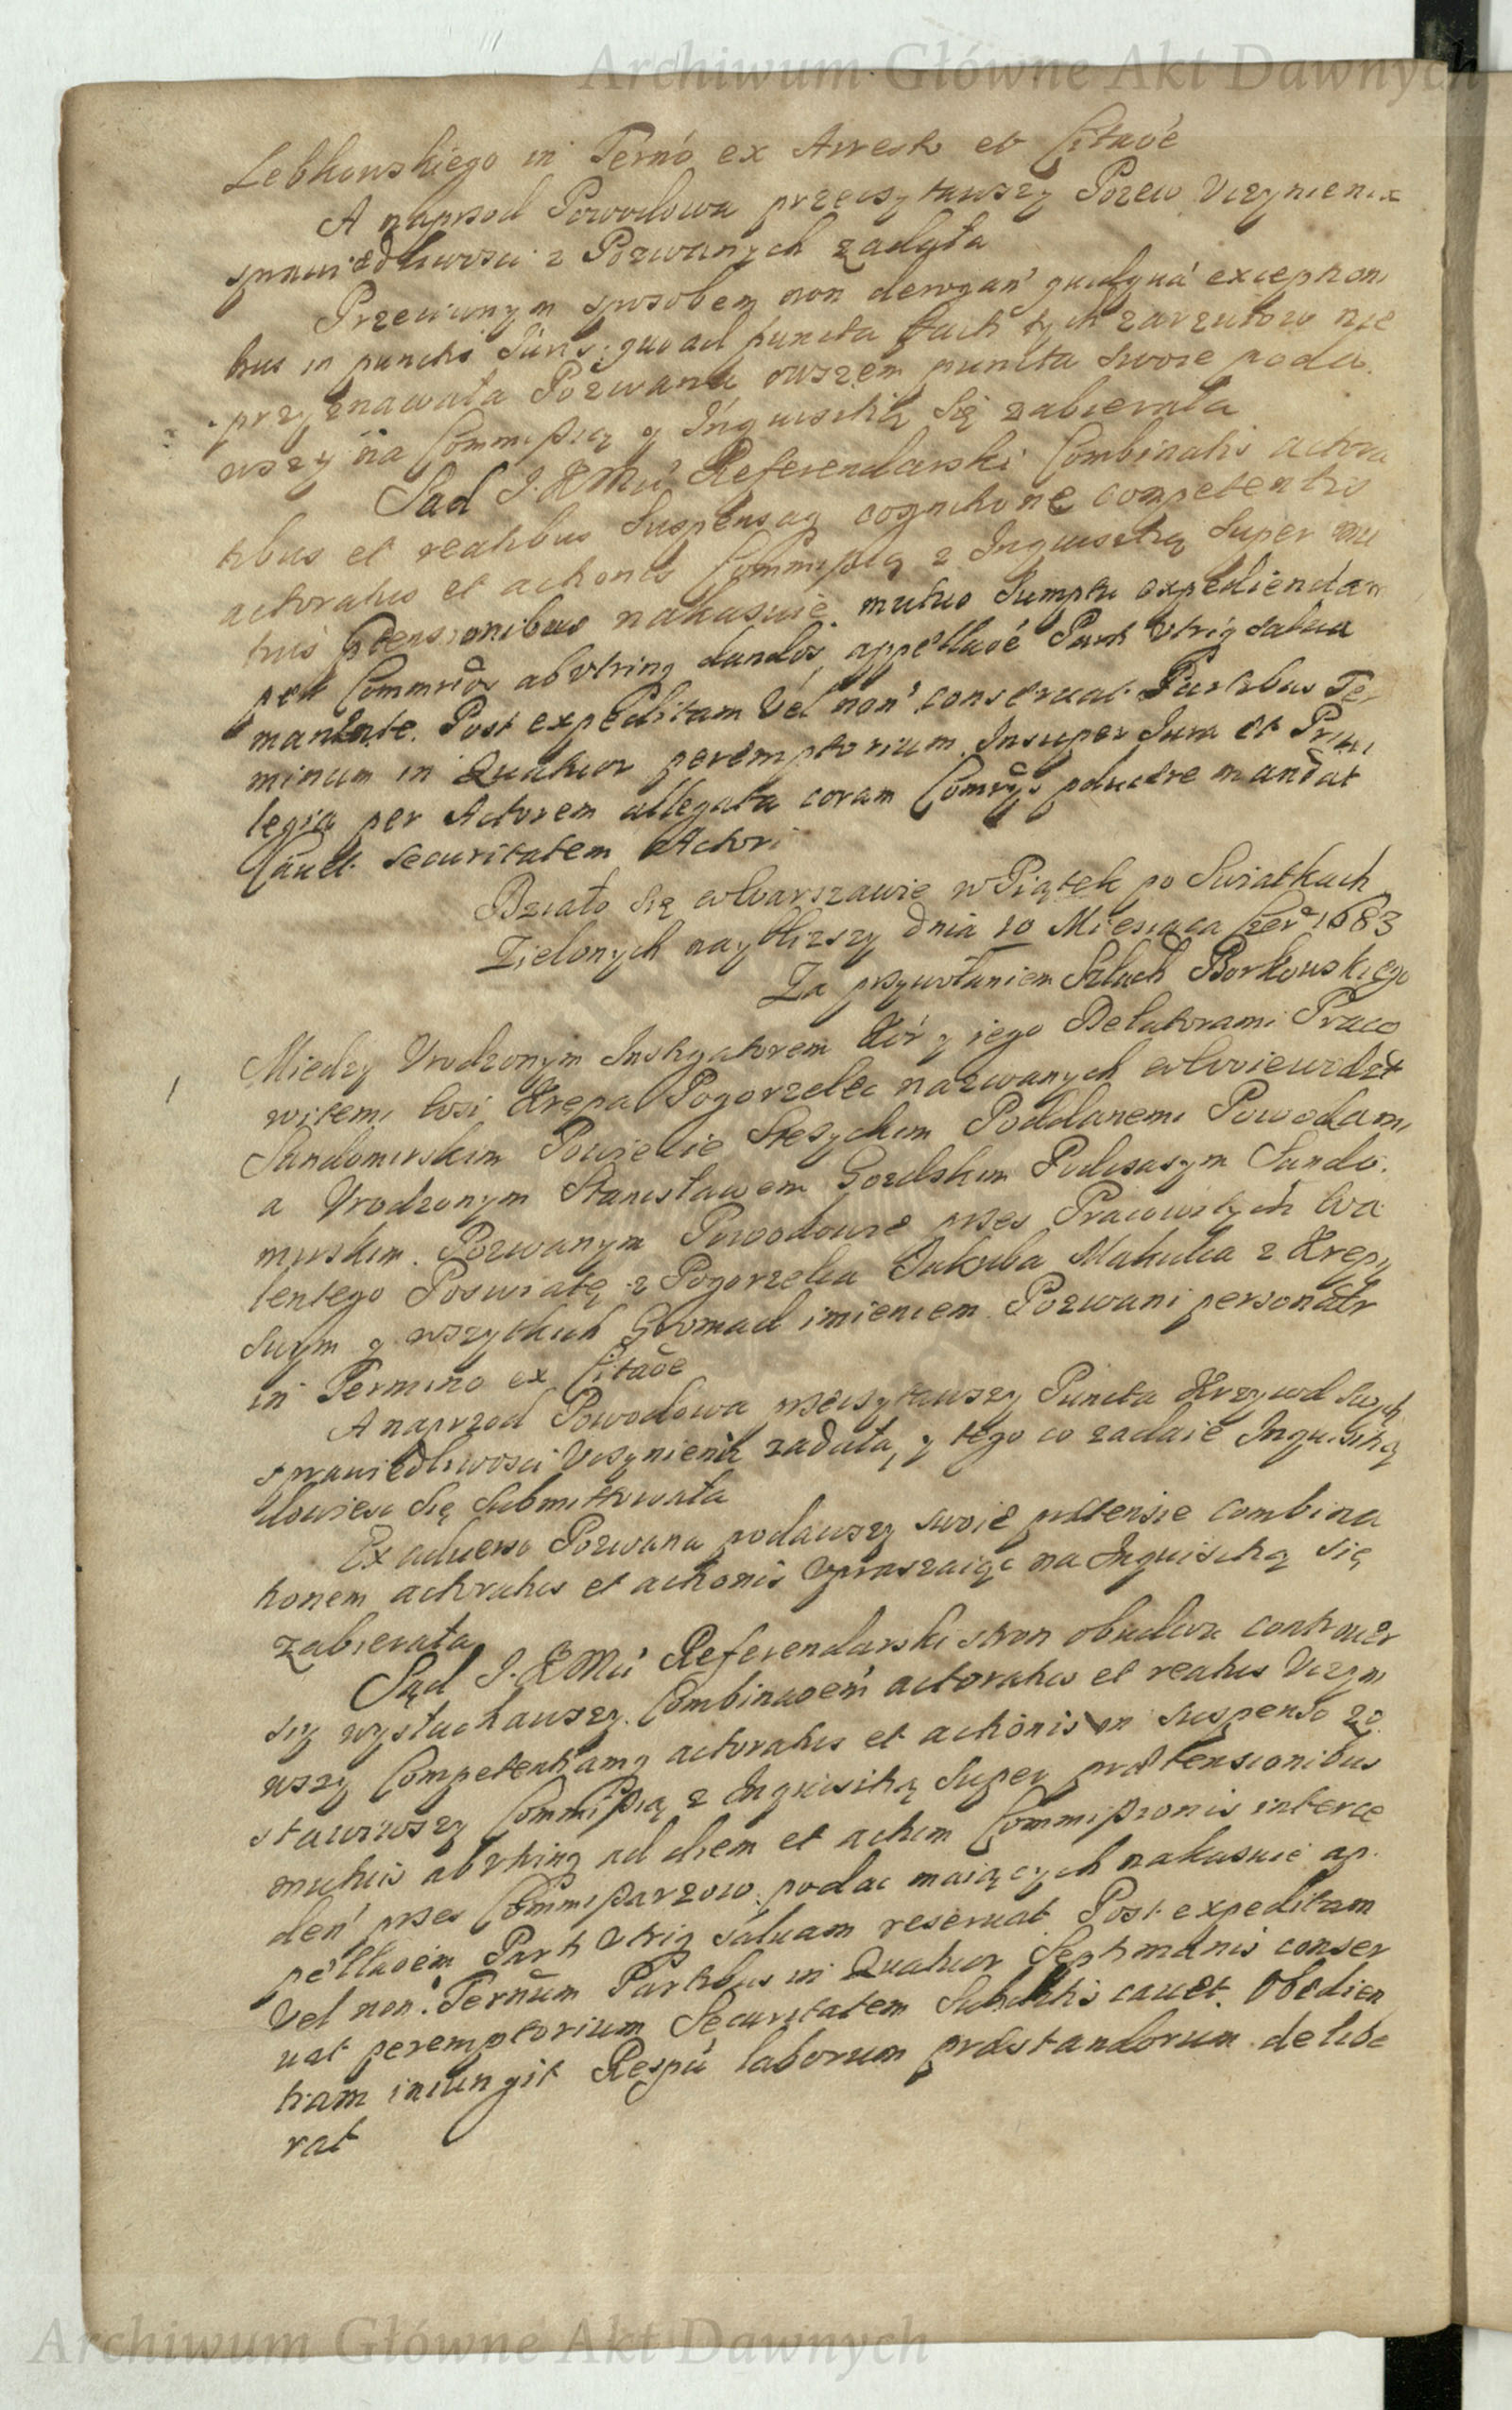 Archiwum Główne Akt Dawnych
Lebkowskiego in Termo ex Arresto et Citaōe
A naprzod Powodowa przeczytawszy Pozew Vczynienia
sprawiedliwosci z Pozwanych żądała
Przeciwnym sposobem non derogan' exceptioni
bus in puncto Juris, quoad puncta tych zarzutow nie
przyznawała Pozwana owszem puncta swoie poda
wszy na Commissią y Inquisitią Się zabierała
Sąd J. K Mci Referendarski Combinatis actora
tibus et reatibus Suspensaq cognitione competentis
actoratus et actionis Commissią z Inquisitią Super mu
tuis ptensionibus nakazuie mutuo Sumptu expediendam
per Commrios abvtrinq dandos, appellaōe Parti Vtriq salua
manente. Post expeditam Vel non conseruat Partibus Ter
minum in Quatuor peremptorium Insuper Jura et Priui
legia per Actorem allegata coram Comrys pducere mandat
Cauet securitatem Actori
Działo Się w Warszawie w Piątek po Swiątkach
Zielonych naybliższy dnia 10 Miesiąca Czer 1683
Za przywołaniem Szlach Borkowskiego
Między Vrodzonym Instygatorem Kor y iego Delatorami Praco
witemi Wsi Krępa Pogorzelec nazwanych w Woiewodzt
Sandomirskim Powiecie Stęzyckim Poddanemi Powodami
a Vrodzonym Stanisławem Gozdskim Podczaszym Sando
mirskim. Pozwanym Powodowie przez Pracowitych Wa
lentego Poswiatę z Pogorzelca Jakuba Makulca z Krępy
Swym y wszytkich Gromad imieniem Pozwani personalr
in Termino ex Citaōe
A naprzod Powodowa przeczytawszy Puncta Krzywd Swych
sprawiedliwosci Vczynienia żądała, y tego co zadaie Inquisitią
dowiesc Się Submittowała
Ex aduerso Pozwana podawszy swoie prætensie combina
tionem actoratus et actionis vpraszaiąc na Inquisitią się
zabierała
Sąd J. K Mci Referendarski stron obudwu controuer
sïy wysłuchawszy. Combinaōem actoratus et reatus Vczyni
wszy Competentiamq actoratus et actionis in suspenso zo
stawiwszy Commissią z Inquisitią Super prætensionibus
mutuis abvtrinq ad diem et actum Commissionis interce
den' przez Commissarzow podac maiących nakazuie ap
pellaōem Parti Vtriq saluam reseruat Post expeditam
Vel non Termum Partibus in Quatuor Septimanis conser
uat peremptorium Securitatem Subditis cauet. Obedien
tiam iniungit Respu laborum præstandorum delibe
rat
Archiwum Główne Akt Dawnych